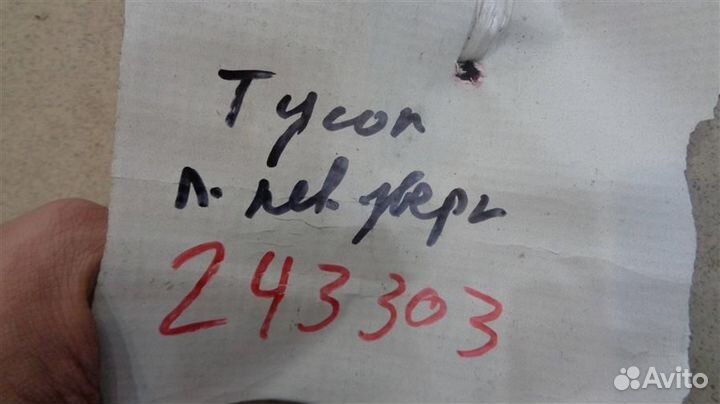 Тусон
п. лев. дверь
243303
Avito